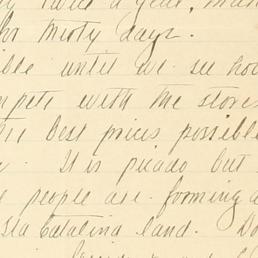 twice a year,
for thirty days.
ible until we see how
mpete with the stores
the best prices possible
It is picado but
e people are forming a
Sta Catalina land. Do